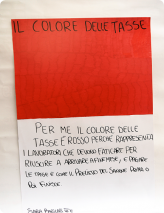 IL COLORE DELLE TASSE
PER ME IL COLORE DELLE
TASSE È ROSSO PERCHÉ RAPPRESENTA
I LAVORATORI CHE DEVONO FATICARE PER
RIUSCIRE A ARRIVARE A FINE MESE, E PAGARE
LE TASSE È COME IL PRELIEVO DEL SANGUE